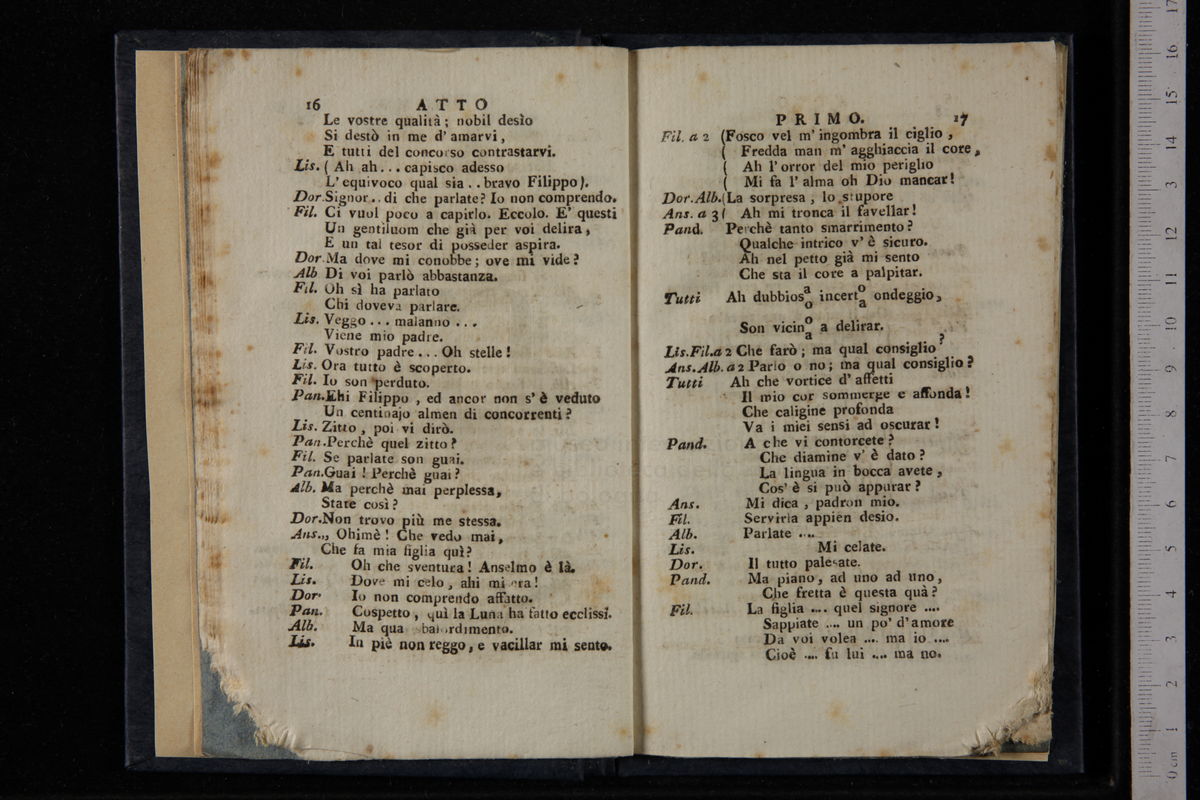 16 ATTO
Le vostre qualità; nobil desìo
Si destò in me d'amarvi,
E tutti del concorso contrastarvi.
Lis. ( Ah ah... capisco adesso
L'equivoco qual sia .. bravo Filippo).
Dor. Signor.. di che parlate? Io non comprendo.
Fil. Ci vuol poco a capirlo. Eccolo. E' questi
Un gentiluom che già per voi delira,
E un tal tesor di posseder aspira.
Dor Ma dove mi conobbe; ove mi vide?
Alb Di voi parlò abbastanza.
Fil. Oh sì ha parlato
Chi doveva parlare.
Lis. Veggo ... malanno ...
Viene mio padre.
Fil. Vostro padre ... Oh stelle!
Lis. Ora tutto è scoperto.
Fil. Io son perduto.
Pan. Ehi Filippo, ed ancor non s'è veduto
Un centinajo almen di concorrenti?
Lis. Zitto, poi vi dirò.
Pan. Perchè quel zitto?
Fil. Se parlate son guai.
Pan. Guai! Perchè guai?
Alb. Ma perchè mai perplessa,
State così?
Dor. Non trovo più me stessa.
Ans.., Ohimè! Che vedo mai,
Che fa mia figlia quì?
Fil. Oh che sventura! Anselmo è là.
Lis. Dove mi celo, ahi mi era!
Dor. Io non comprendo affatto.
Pan. Cospetto, quì la Luna ha fatto ecclissi.
Alb. Ma qua sbalordimento.
Lis. In piè non reggo, e vacillar mi sento.
PRIMO. 17
Fil. a 2 (Fosco vel m'ingombra il ciglio,
( Fredda man m'agghiaccia il core,
( Ah l'orror del mio periglio
( Mi fa l'alma oh Dio mancar!
Dor. Alb. (La sorpresa, lo stupore
Ans. a 3 ( Ah mi tronca il favellar!
Pand. Perchè tanto smarrimento?
Qualche intrico v'è sicuro.
Ah nel petto già mi sento
Che sta il core a palpitar.
Tutti Ah dubbios a/o incert o/a ondeggio,
Son vicin o/a a delirar.
Lis. Fil. a 2 Che farò; ma qual consiglio?
Ans. Alb. a 2 Parlo o no; ma qual consiglio?
Tutti Ah che vortice d'affetti
Il mio cor sommerge e affonda!
Che caligine profonda
Va i miei sensi ad oscurar!
Pand. A che vi contorcete?
Che diamine v'è dato?
La lingua in bocca avete,
Cos'è si può appurar?
Ans. Mi dica, padron mio.
Fil. Servirla appien desio.
Alb. Parlate ....
Lis. Mi celate.
Dor. Il tutto palesate.
Pand. Ma piano, ad uno ad uno,
Che fretta è questa quà?
Fil. La figlia .... quel signore ....
Sappiate .... un po' d'amore
Da voi volea .... ma io ....
Cioè .... fu lui .... ma no.
0 cm 1 2 3 4 5 6 7 8 9 10 11 12 13 14 15 16 17